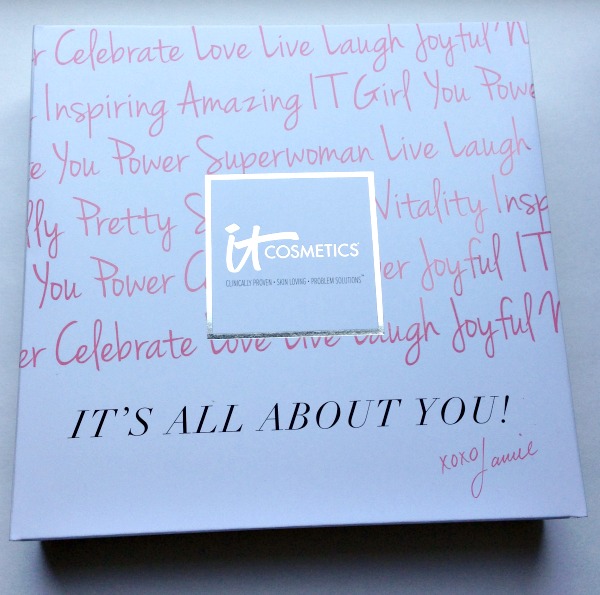 r Celebrate Love Live Laugh Joyful
Inspiring Amazing IT Girl You Powe
e You Power Superwoman Live Laugh
lly Pretty Vitality Insp
You Power er Joyful IT
er Celebrate Love Live Laugh Joyful
it COSMETICS
CLINICALLY PROVEN • SKIN LOVING • PROBLEM SOLUTIONS™
IT'S ALL ABOUT YOU!
xoxo Jamie